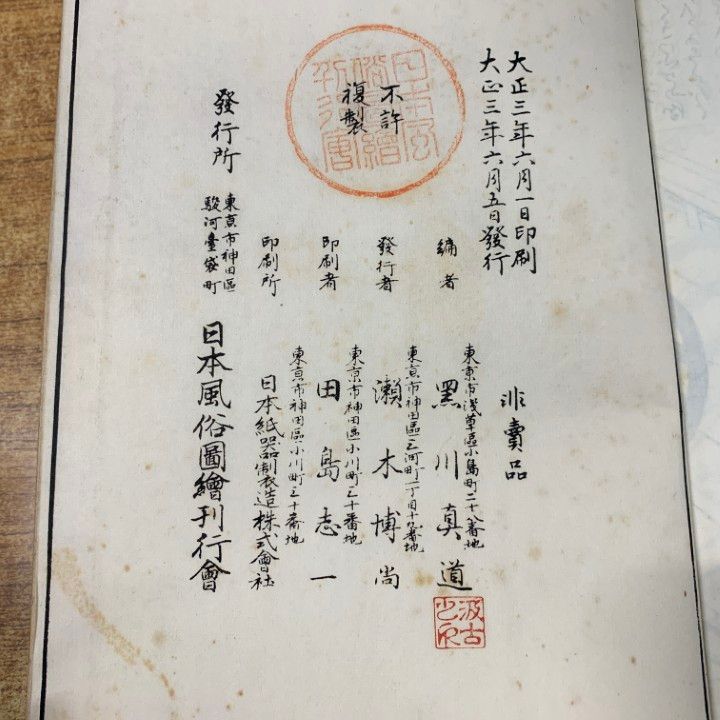 大正三年六月一日印刷
大正三年六月五日發行
不許
複製
非賣品
編者
東京市淺草區小島町二十八番地
黑川真道
發行者
東京市神田區三河町一丁目十九番地
瀨木博尚
印刷者
東京市神田區小川町三十番地
田島志一
印刷所
東京市神田區小川町三十番地
日本紙器製造株式會社
發行所
東京市神田區
駿河臺袋町
日本風俗圖繪刊行會